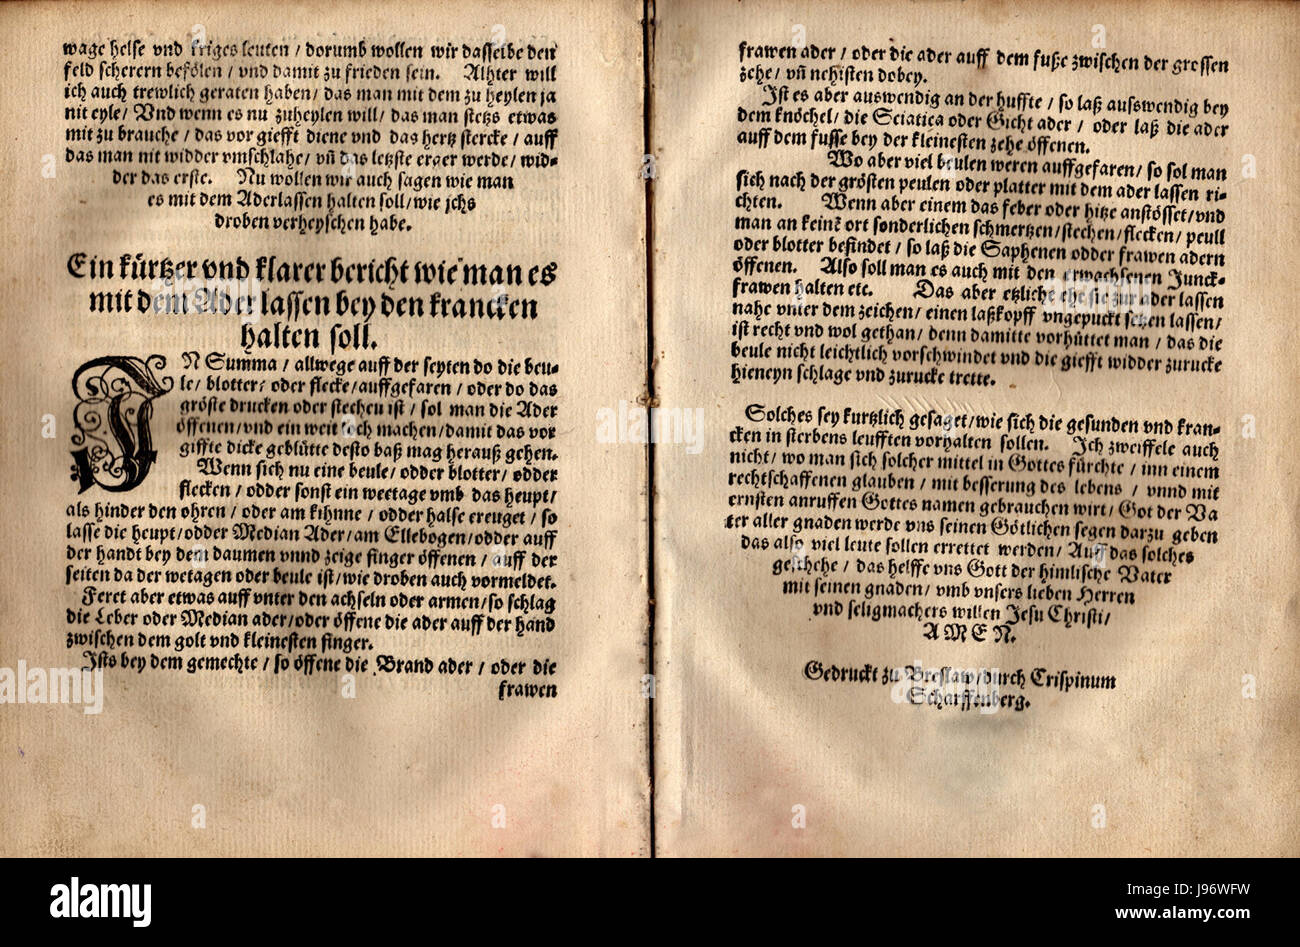 wage helfe vnd kriges leuten / dorumb wollen wir dasselbe den
feld scherern befölen / vnd damit zu frieden sein. Alhier will
ich auch trewlich geraten haben / das man mit dem zu heylen ja
nit eyle / Vnd wenn es nu zuheylen will / das man stetzs etwas
mit zu brauche / das vor giefft diene vnd das hertz stercke / auff
das man nit widder vmschlahe / vñ das letzte erger werde / wid-
der das erste. Nu wollen wir auch sagen wie man
es mit dem Aderlassen halten soll / wie ichs
droben verheyschen habe.
Ein kürtzer vnd klarer bericht wie man es
mit dem Ader lassen bey den krancken
halten soll.
IN Summa / allwege auff der seyten do die beu-
le / blotter / oder flecke / auffgefaren / oder do das
gröste drucken oder stechen ist / sol man die Ader
öffenen / vnd ein weit loch machen / damit das vor
giffte dicke geblütte desto baß mag herauß gehen.
Wenn sich nu eine beule / odder blotter / odder
flecken / odder sonst ein weetage vmb das heupt /
als hinder den ohren / oder am kihnne / odder halse ereuget / so
lasse die heupt / odder Median Ader / am Ellebogen / odder auff
der handt bey dem daumen vnnd zeige finger öffenen / auff der
seiten da der wetagen oder beule ist / wie droben auch vormeldet.
Feret aber etwas auff vnter den achseln oder armen / so schlag
die Leber oder Median ader / oder öffene die ader auff der hand
zwischen dem golt vnd kleinesten finger.
Ists bey dem gemechte / so öffene die Brand ader / oder die
frawen
frawen ader / oder die ader auff dem fuße zwischen der grossen
zehe / vñ nehisten dobey.
Ist es aber auswendig an der huffte / so laß aufswendig bey
dem knöchel / die Sciatica oder Gicht ader / oder laß die ader
auff dem fusse bey der kleinesten zehe öffenen.
Wo aber viel beulen weren auffgefaren / so sol man
sich nach der grösten peulen oder platter mit dem ader lassen ri-
chten. Wenn aber einem das feber oder hitze anstösset / vnd
man an keinē ort sonderlichen schmertzen / stechen / flecken / peull
oder blotter befindet / so laß die Saphenen odder frawen adern
öffenen. Also soll man es auch mit den erwachsenen Junck-
frawen halten etc. Das aber etzliche ehe sie zur ader lassen
nahe vnter dem zeichen / einen laßkopff vngepuckt setzen lassen /
ist recht vnd wol gethan / denn damitte vorhüttet man / das die
beule nicht leichtlich vorschwindet vnd die giefft widder zurucke
hieneyn schlage vnd zurucke trette.
Solches sey kurtzlich gesaget / wie sich die gesunden vnd kran-
cken in sterbens leufften vorhalten sollen. Ich zweiffele auch
nicht / wo man sich solcher mittel in Gottes fürchte / inn einem
rechtschaffenen glauben / mit besserung des lebens / vnnd mit
ernsten anruffen Gottes namen gebrauchen wirt / Got der Va
ter aller gnaden werde vns seinen Götlichen segen darzu geben
das also viel leute sollen errettet werden / Auff das solches
geschehe / das helffe vns Gott der himlische Vater
mit seinen gnaden / vmb vnsers lieben Herren
vnd seligmachers willen Jesu Christi /
A M E N.
Gedruckt zu Breslaw / durch Crispinum
Scharffenberg.
alamy
Image ID: J96WFW
www.alamy.com